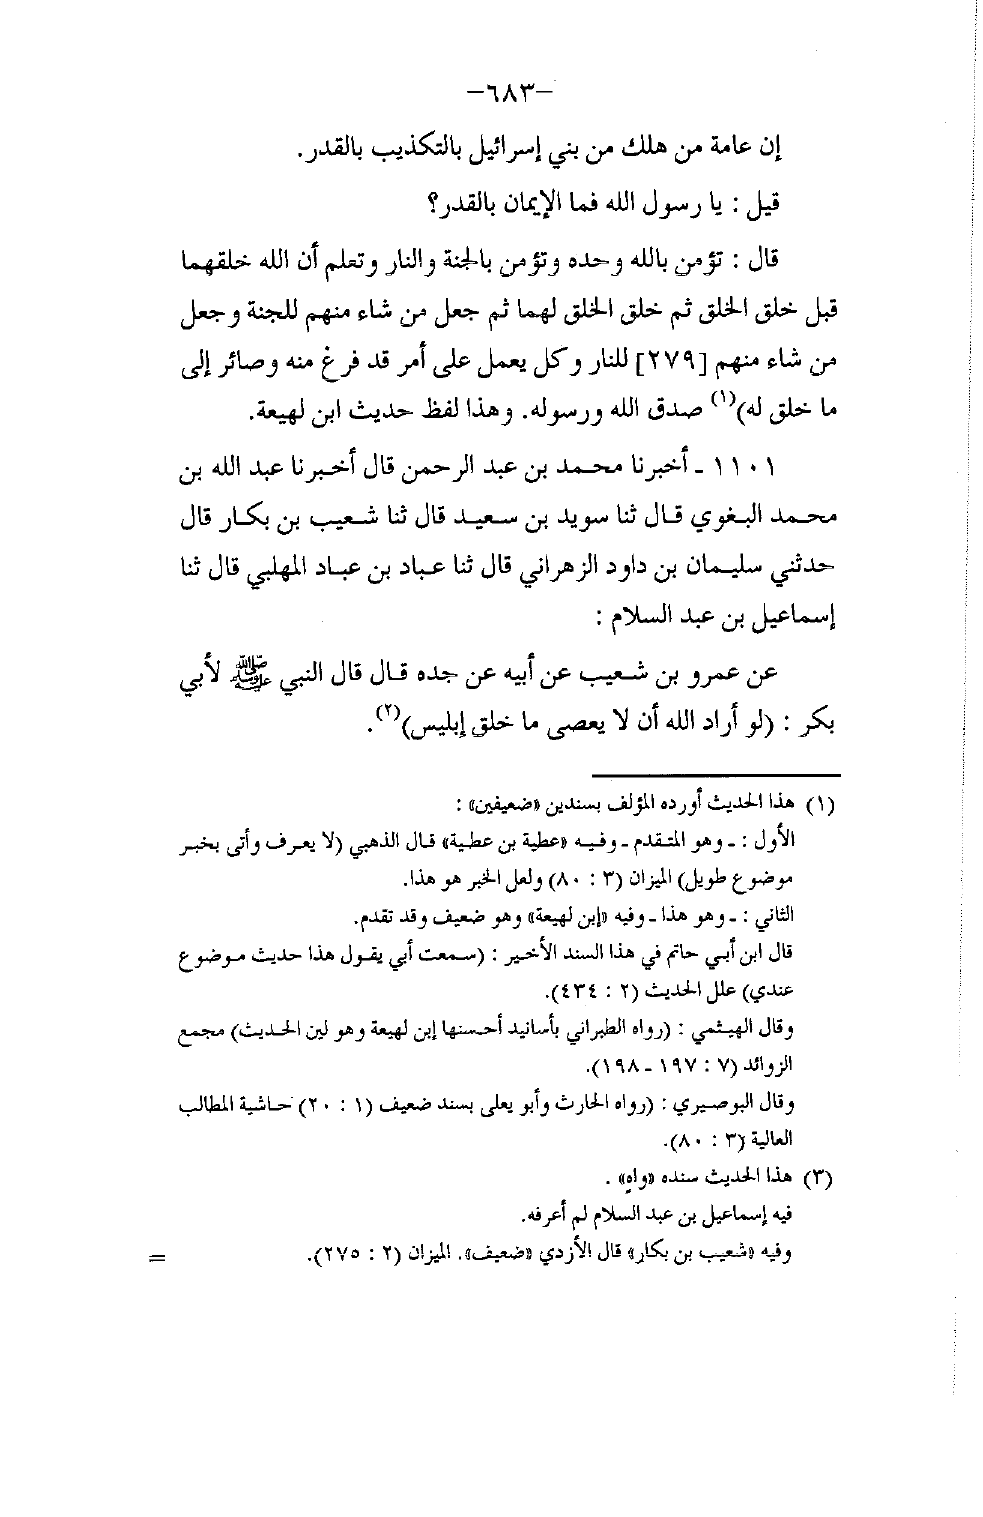 –٦٨٣–
إن عامة من هلك من بني إسرائيل بالتكذيب بالقدر.
قيل : يا رسول الله فما الإيمان بالقدر؟
قال : تؤمن بالله وحده وتؤمن بالجنة والنار وتعلم أن الله خلقهما
قبل خلق الخلق ثم خلق الخلق لهما ثم جعل من شاء منهم للجنة وجعل
من شاء منهم [٢٧٩] للنار وكل يعمل على أمر قد فرغ منه وصائر إلى
ما خلق له)(١) صدق الله ورسوله. وهذا لفظ حديث ابن لهيعة.
١١٠١ ـ أخبرنا محمد بن عبد الرحمن قال أخبرنا عبد الله بن
محمد البغوي قال ثنا سويد بن سعيد قال ثنا شعيب بن بكار قال
حدثني سليمان بن داود الزهراني قال ثنا عباد بن عباد المهلبي قال ثنا
إسماعيل بن عبد السلام :
عن عمرو بن شعيب عن أبيه عن جده قال قال النبي ﷺ لأبي
بكر : (لو أراد الله أن لا يعصى ما خلق إبليس)(٢).
(١) هذا الحديث أورده المؤلف بسندين «ضعيفين» :
الأول : ـ وهو المتقدم ـ وفيه «عطية بن عطية» قال الذهبي (لا يعرف وأتى بخبر
موضوع طويل) الميزان (٣ : ٨٠) ولعل الخبر هو هذا.
الثاني : ـ وهو هذا ـ وفيه «إبن لهيعة» وهو ضعيف وقد تقدم.
قال ابن أبي حاتم في هذا السند الأخير : (سمعت أبي يقول هذا حديث موضوع
عندي) علل الحديث (٢ : ٤٣٤).
وقال الهيثمي : (رواه الطبراني بأسانيد أحسنها إبن لهيعة وهو لين الحديث) مجمع
الزوائد (٧ : ١٩٧ ـ ١٩٨).
وقال البوصيري : (رواه الحارث وأبو يعلى بسند ضعيف (١ : ٢٠) حاشية المطالب
العالية (٣ : ٨٠).
(٣) هذا الحديث سنده «واهٍ» .
فيه إسماعيل بن عبد السلام لم أعرفه.
وفيه «شعيب بن بكار» قال الأزدي «ضعيف». الميزان (٢ : ٢٧٥). =